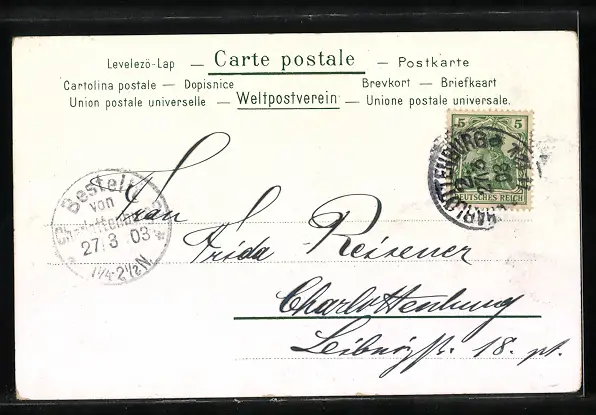 Levelezö-Lap — Carte postale — Postkarte
Cartolina postale — Dopisnice Brevkort — Briefkaart
Union postale universelle — Weltpostverein — Unione postale universale.
5 5
DEUTSCHES REICH
CHARLOTTENBURG
27/3
03
Bestellt
von
Charlottenburg
27.3.03
1¼-2½N.
Frau
Frida Reisener
Charlottenburg
Leibnizstr. 18. pt.